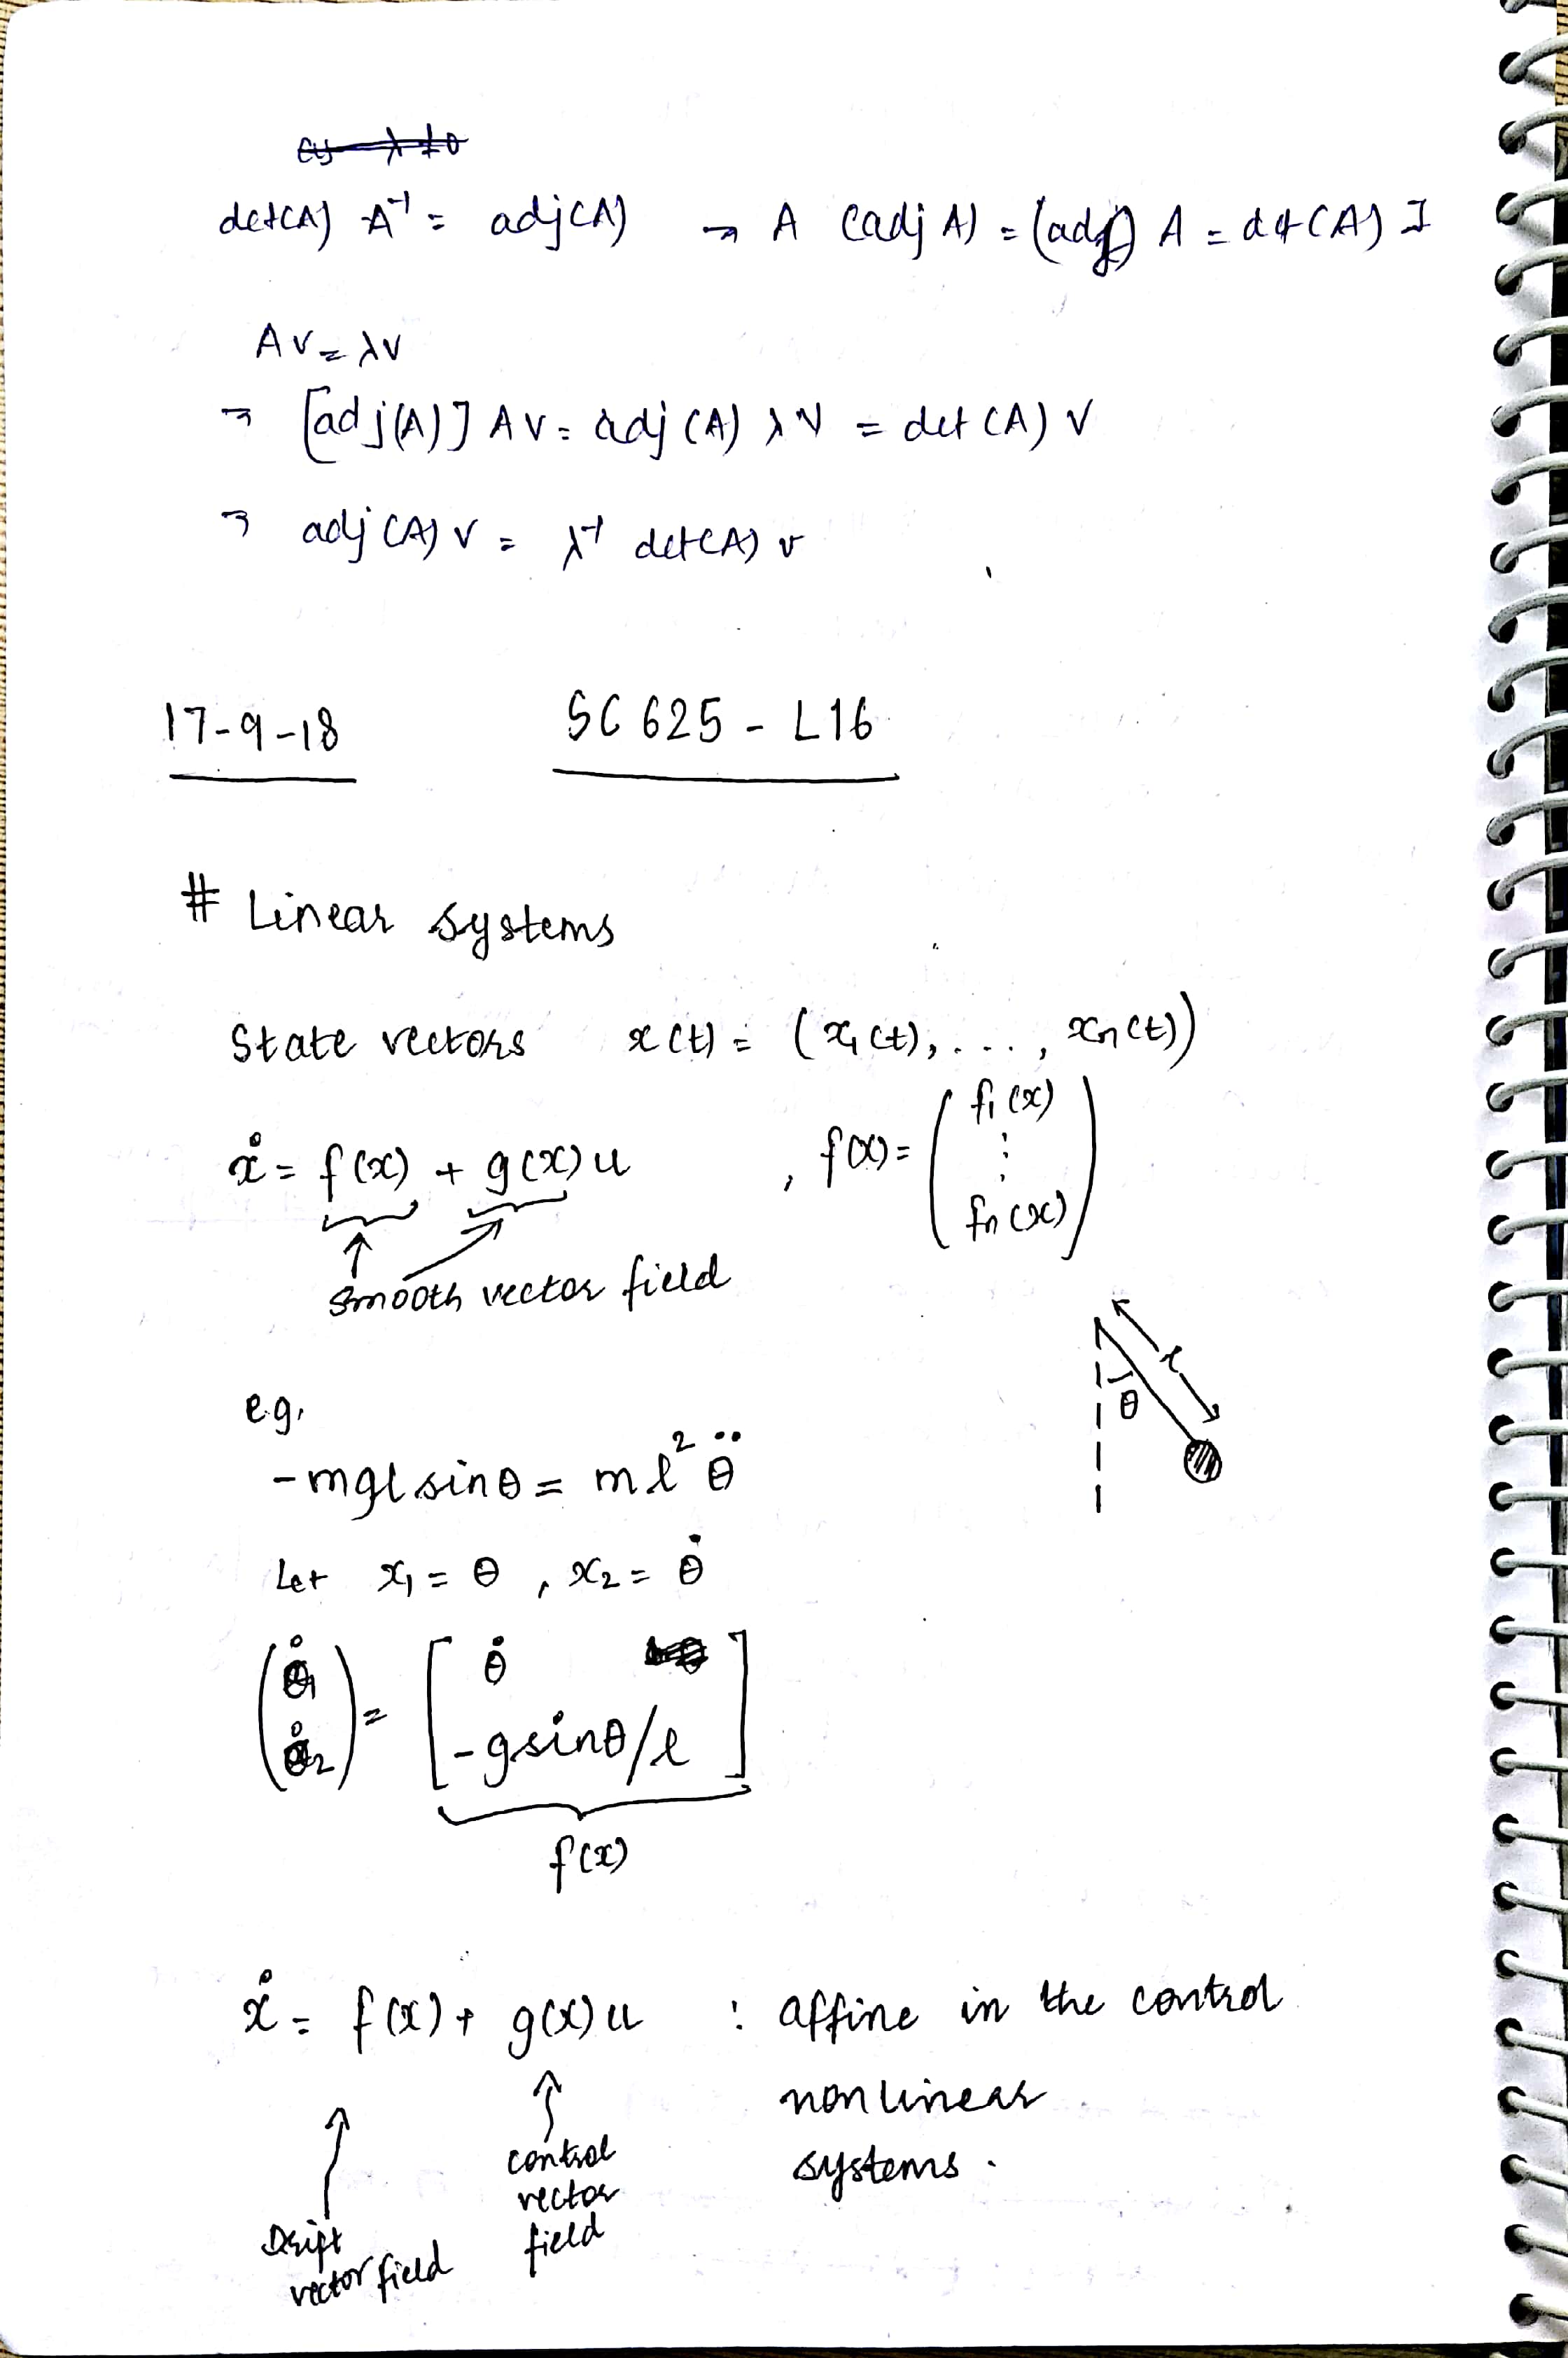 det(A) A⁻¹ = adj(A) → A (adj A) = (adj A) A = det(A) I
Av = λv
→ [adj(A)] Av = adj(A) λv = det(A) v
→ adj(A) v = λ⁻¹ det(A) v
17-9-18 SC 625 - L16
# Linear systems
State vectors x(t) = (x₁(t), ...., xₙ(t))
ẋ = f(x) + g(x)u , f(x) = (f₁(x) ⋮ fₙ(x))
smooth vector field
l
θ
e.g.
-mgl sinθ = ml² θ̈
Let x₁ = θ , x₂ = θ̇
(ẋ₁ ẋ₂) = [θ̇ -gsinθ/l]
f(x)
ẋ = f(x) + g(x)u : affine in the control
nonlinear
systems.
control
vector
field
Drift
vector field